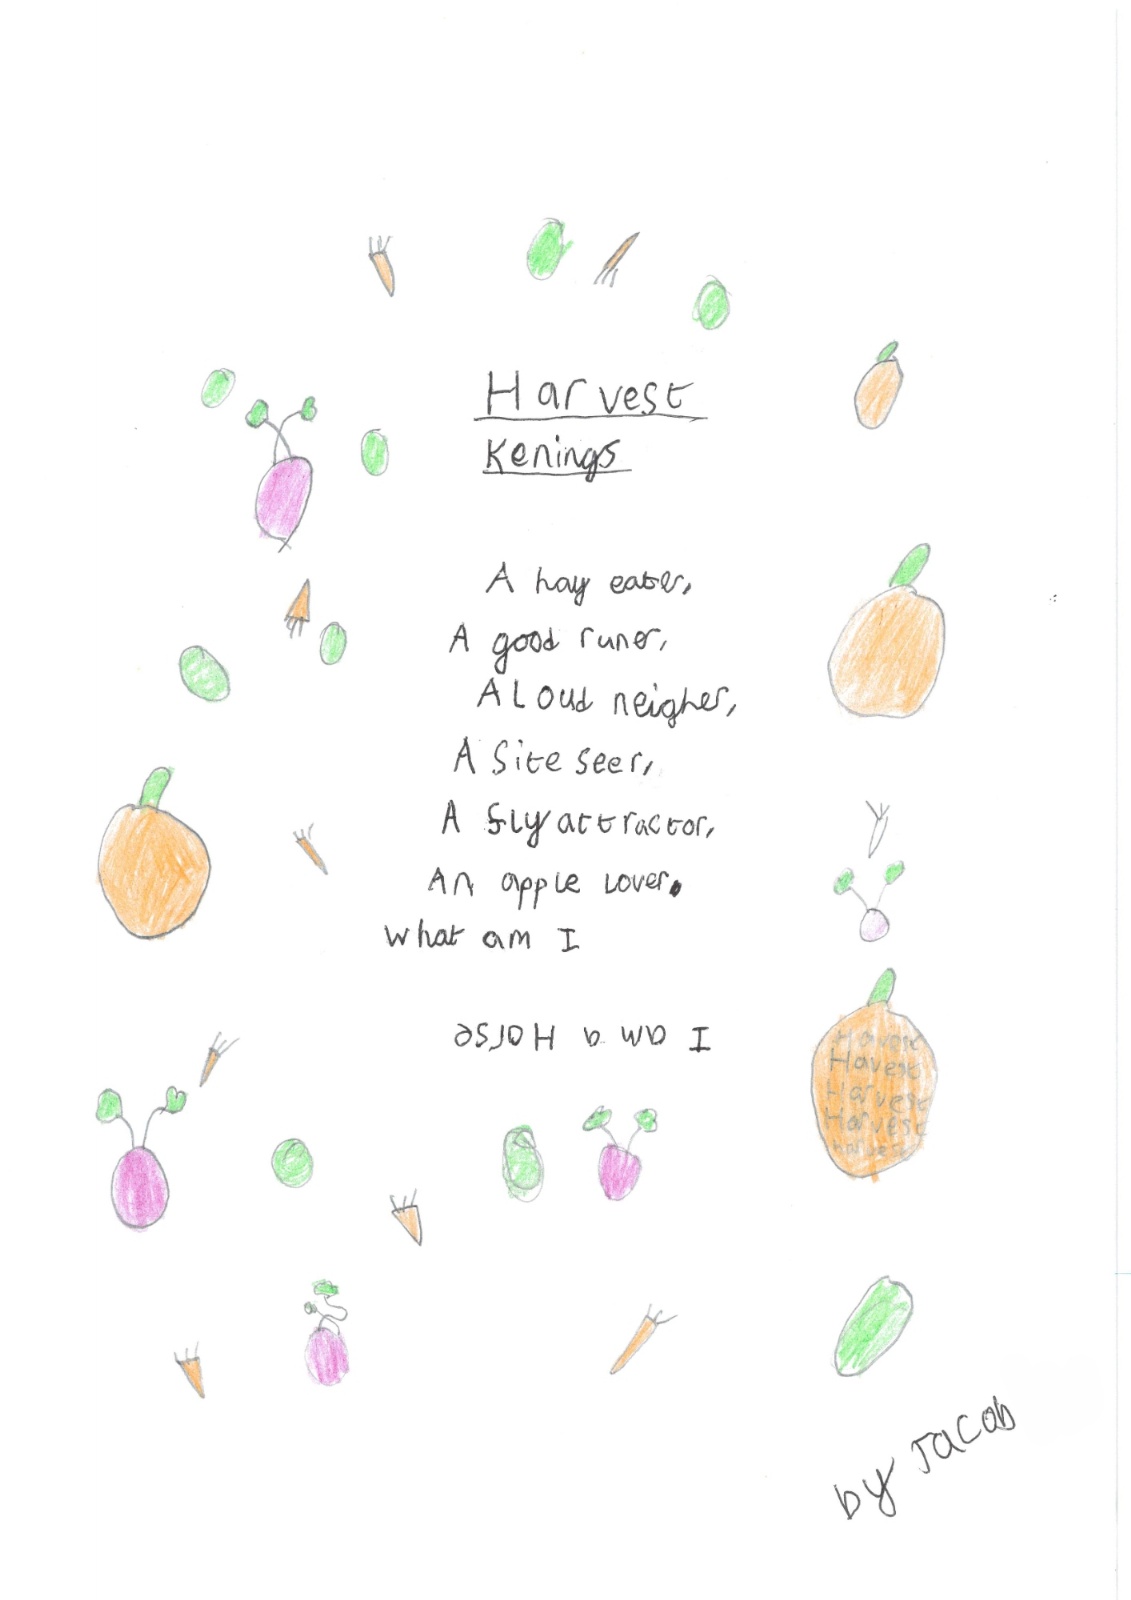 Harvest
Kenings
A hay eater,
A good runer,
A Loud neigher,
A Site seer,
A fly attractor,
An apple Lover.
What am I
I am a Horse
Havest
Havest
Harvest
Harvest
harvest
by Jacob